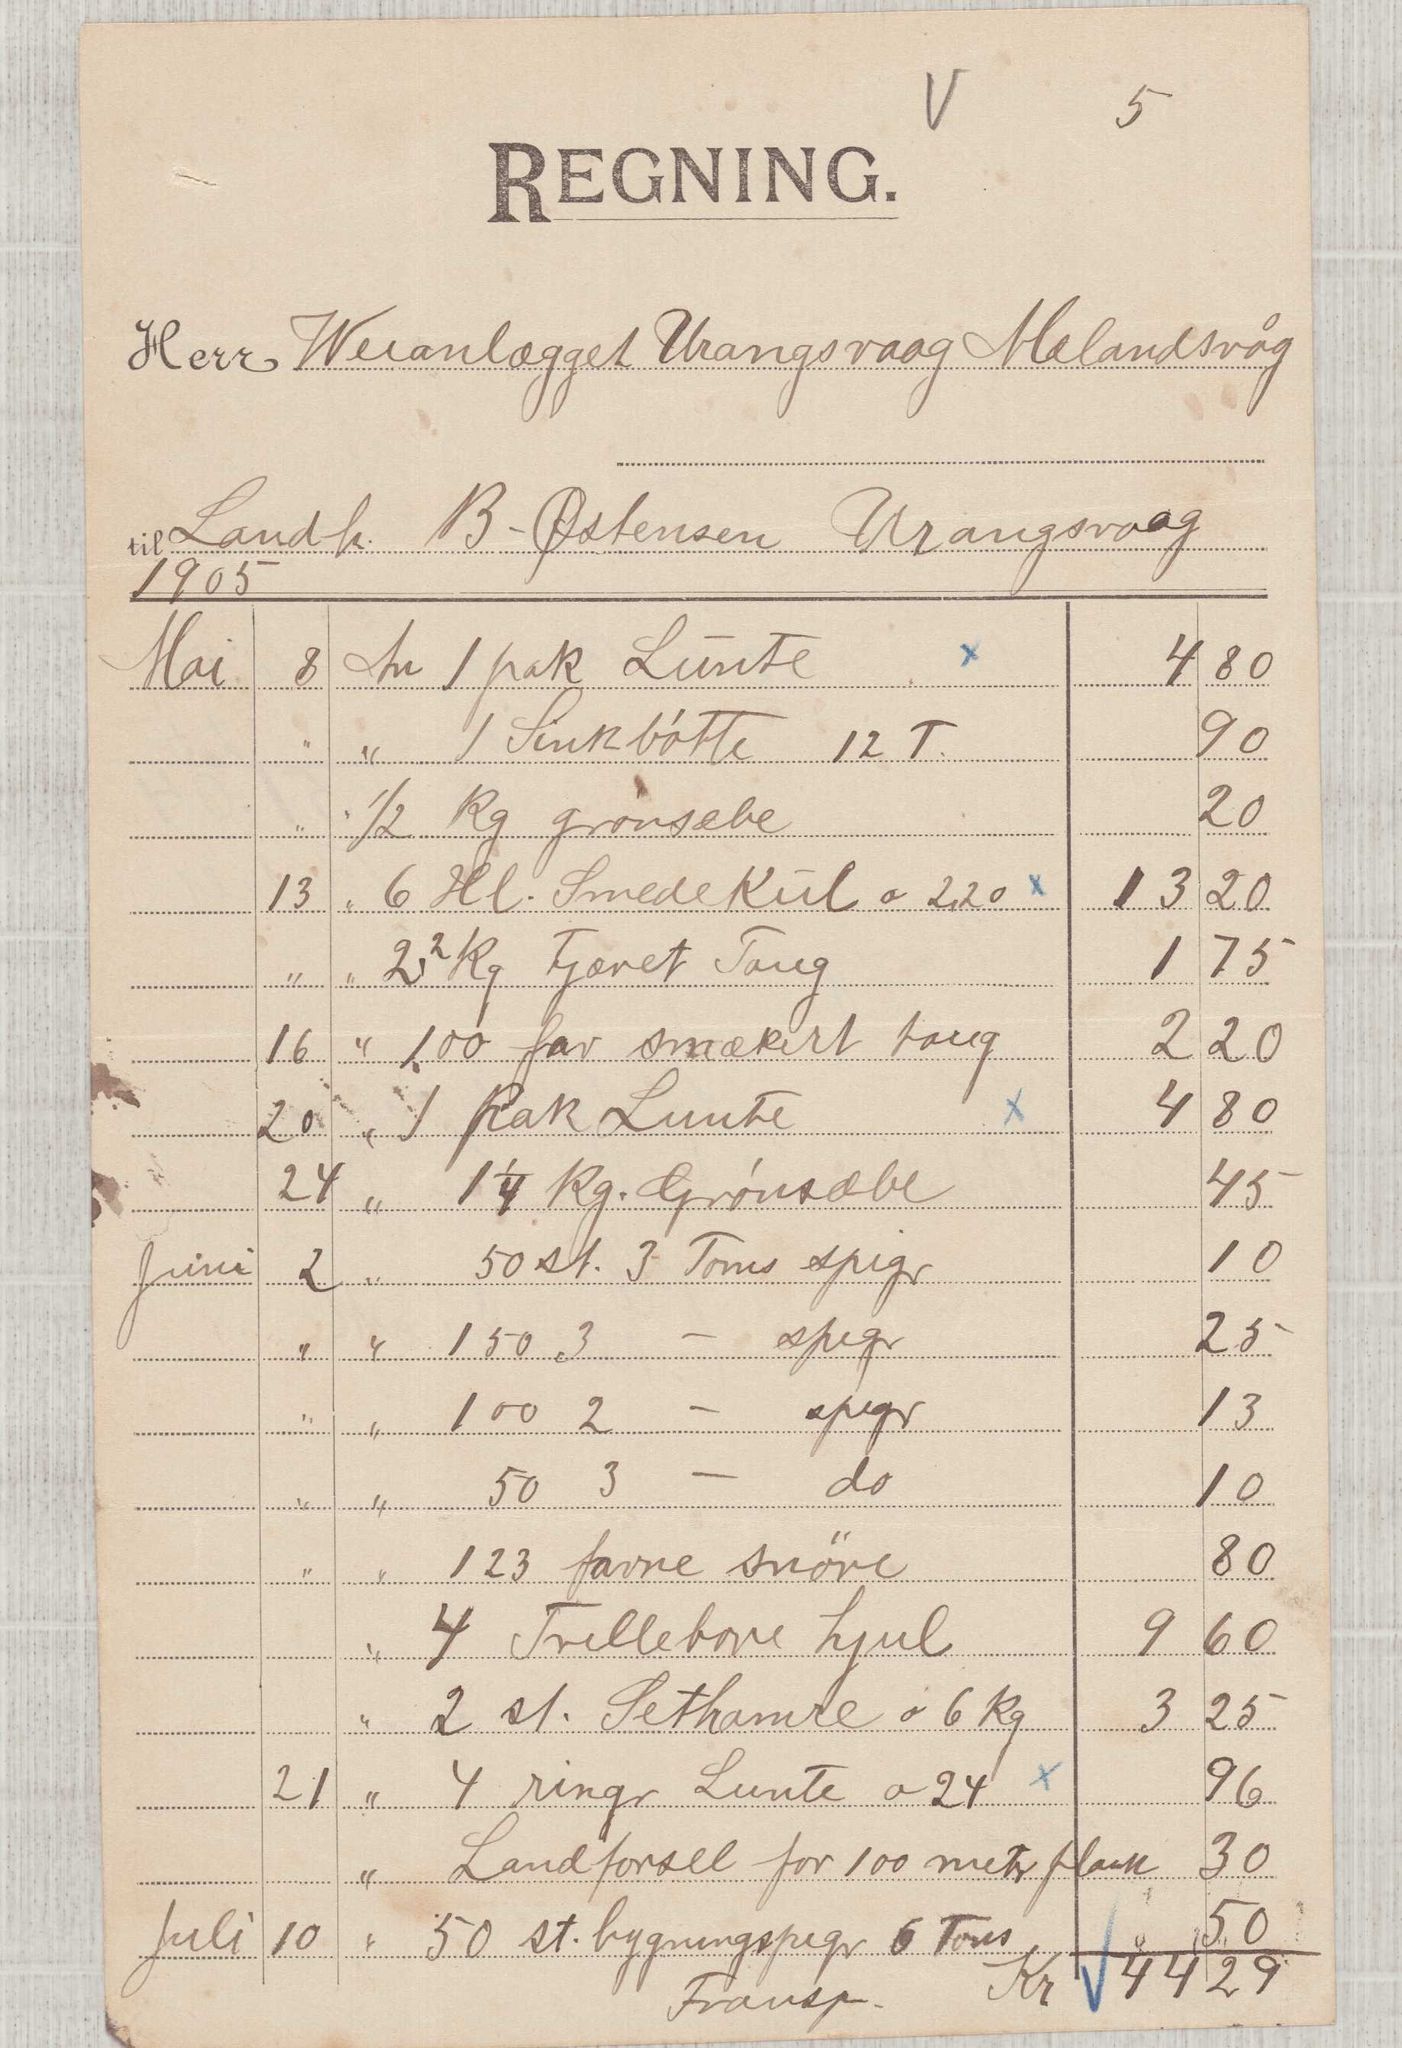 V 5
REGNING.
Herr Weianlægget Urangsvaag Mælandsvåg
til Landh. B-Østensen Urangsvaag
1905
Mai 8 An 1 pak Lunte x 4 80
" " 1 Sinkbøtte 12 T. 90
" " 1/2 Kg grønsæbe 20
13 " 6 Hl. Smedekul a 2,20 x 13 20
" " 2,2 Kg tjæret Toug 1 75
16 " 100 fav smækert toug 2 20
20 " 1 Pak Lunte x 4 80
24 " 1 1/4 Kg. Grønsæbe 45
Juni 2 " 50 st. 3 Toms spigr 10
" " 150 3 - spigr 25
" " 100 2 - spigr 13
" " 50 3 - do 10
" " 123 favne snöre 80
" 4 Trillebøre hjul 9 60
" 2 st. Sethamre a 6 Kg 3 25
21 " 4 ringr Lunte a 24 x 96
" Landforsel for 100 metr plank 30
Juli 10 " 50 st. bygningspigr 6 Toms 50
Transp. Kr 44 29